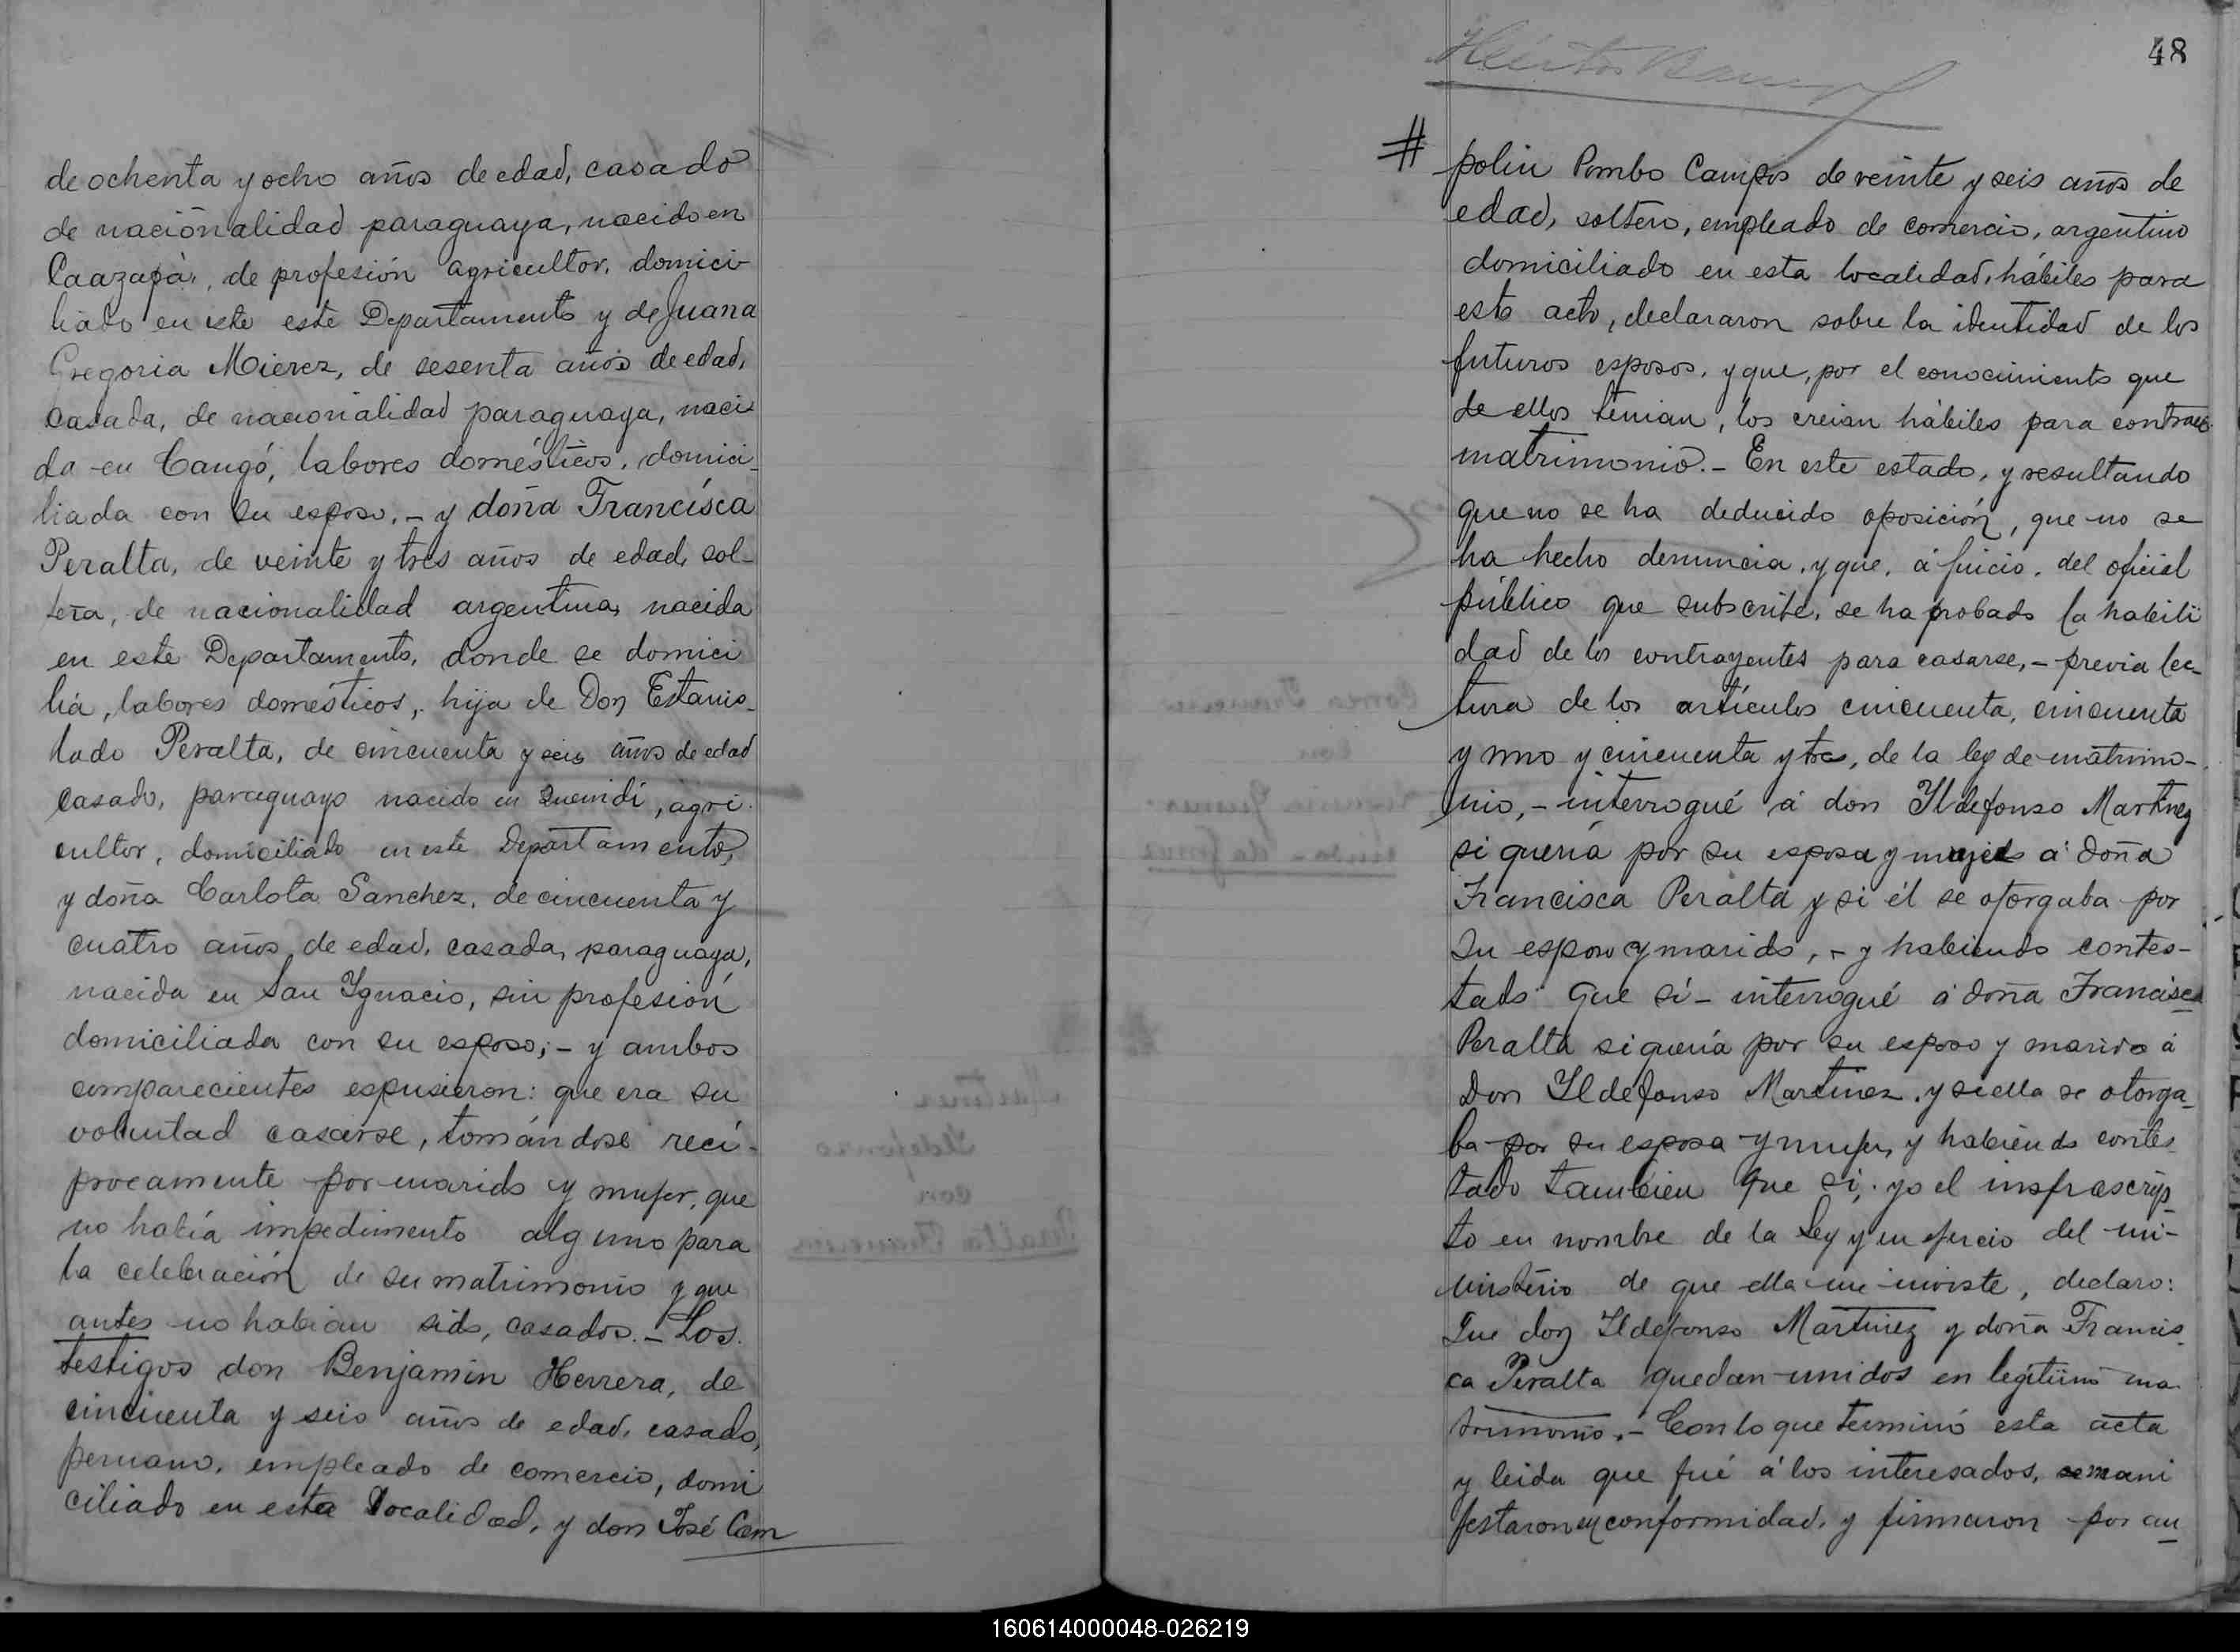 de ochenta y ocho años de edad, casado
de nacionalidad paraguaya, nacido en
Caazapá, de profesión agricultor, domici-
liado en este este Departamento y de Juana
Gregoria Mierez, de sesenta años de edad,
casada, de nacionalidad paraguaya, naci-
da en Cangó, labores domésticos, domici-
liada con su esposo, - y doña Francisca
Peralta, de veinte y tres años de edad, sol-
tera, de nacionalidad argentina, nacida
en este Departamento, donde se domici
lia, labores domésticos, hija de Don Estanis-
lado Peralta, de cincuenta y seis años de edad
casado, paraguayo nacido en Quiindi, agri-
cultor, domiciliado en este Departamento,
y doña Carlota Sanchez, de cincuenta y
cuatro años de edad, casada, paraguaya,
nacida en San Ygnacio, sin profesión
domiciliada con su esposo; - y ambos
comparecientes espusieron: que era su
voluntad casarse, tomándose reci-
procamente por marido y mujer, que
no había impedimento alguno para
la celebración de su matrimonio y que
antes no habian sido, casados. - Los
testigos don Benjamin Herrera, de
cincuenta y seis años de edad, casado,
peruano, empleado de comercio, domi
ciliado en esta localidad, y don José Cam
48
# polin Pombo Campos de veinte y seis años de
edad, soltero, empleado de comercio, argentino
domiciliado en esta localidad, hábiles para
este acto, declararon sobre la identidad de los
futuros esposos, y que, por el conocimiento que
de ellos tenian, los creian hábiles para contraer
matrimonio. - En este estado, y resultando
que no se ha deducido oposición, que no se
ha hecho denuncia, y que, á juicio, del oficial
público que subscribe, se ha probado la habili
dad de los contrayentes para casarse, - previa lec-
tura de los artículos cincuenta, cincuenta
y uno y cincuenta y tres, de la ley de matrimo-
nio, - interrogué á don Yldefonso Martinez
si quería por su esposa y mujer á doña
Francisca Peralta y si él se otorgaba por
su esposo y marido, - y habiendo contes-
tado que sí - interrogué á doña Francisca
Peralta si quería por su esposo y marido á
Don Yldefonso Martinez, y si ella se otorga-
ba por su esposa y mujer, y habiendo contes-
tado tambien que sí; yo el insfrascrip-
to en nombre de la Ley y en ejercio del mi-
nisterio de que ella me inviste, declaro:
Que don Yldefonso Martinez y doña Francis-
ca Peralta quedan unidos en legítimo ma-
trimonio. - Con lo que terminó esta acta
y leida que fué á los interesados, mani
festaron conformidad, y firmaron por an
160614000048-026219